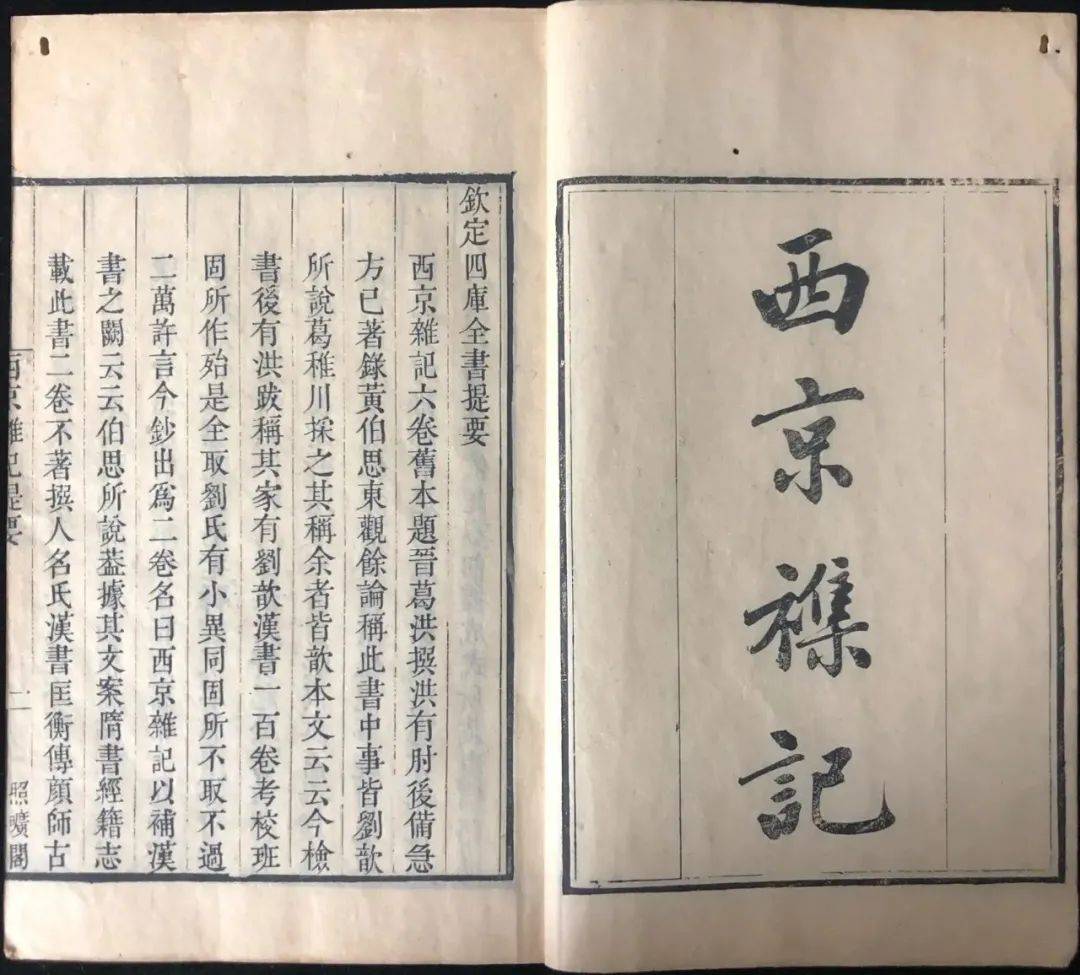 西京襍記
欽定四庫全書提要
西京雜記六卷舊本題晉葛洪撰洪有肘後備急
方已著錄黃伯思東觀餘論稱此書中事皆劉歆
所說葛稚川採之其稱余者皆歆本文云云今檢
書後有洪跋稱其家有劉歆漢書一百卷考校班
固所作殆是全取劉氏有小異同固所不取不過
二萬許言今鈔出爲二卷名曰西京雜記以補漢
書之闕云云伯思所說葢據其文案隋書經籍志
載此書二卷不著撰人名氏漢書匡衡傳顏師古
西京雜記提要
一
照曠閣